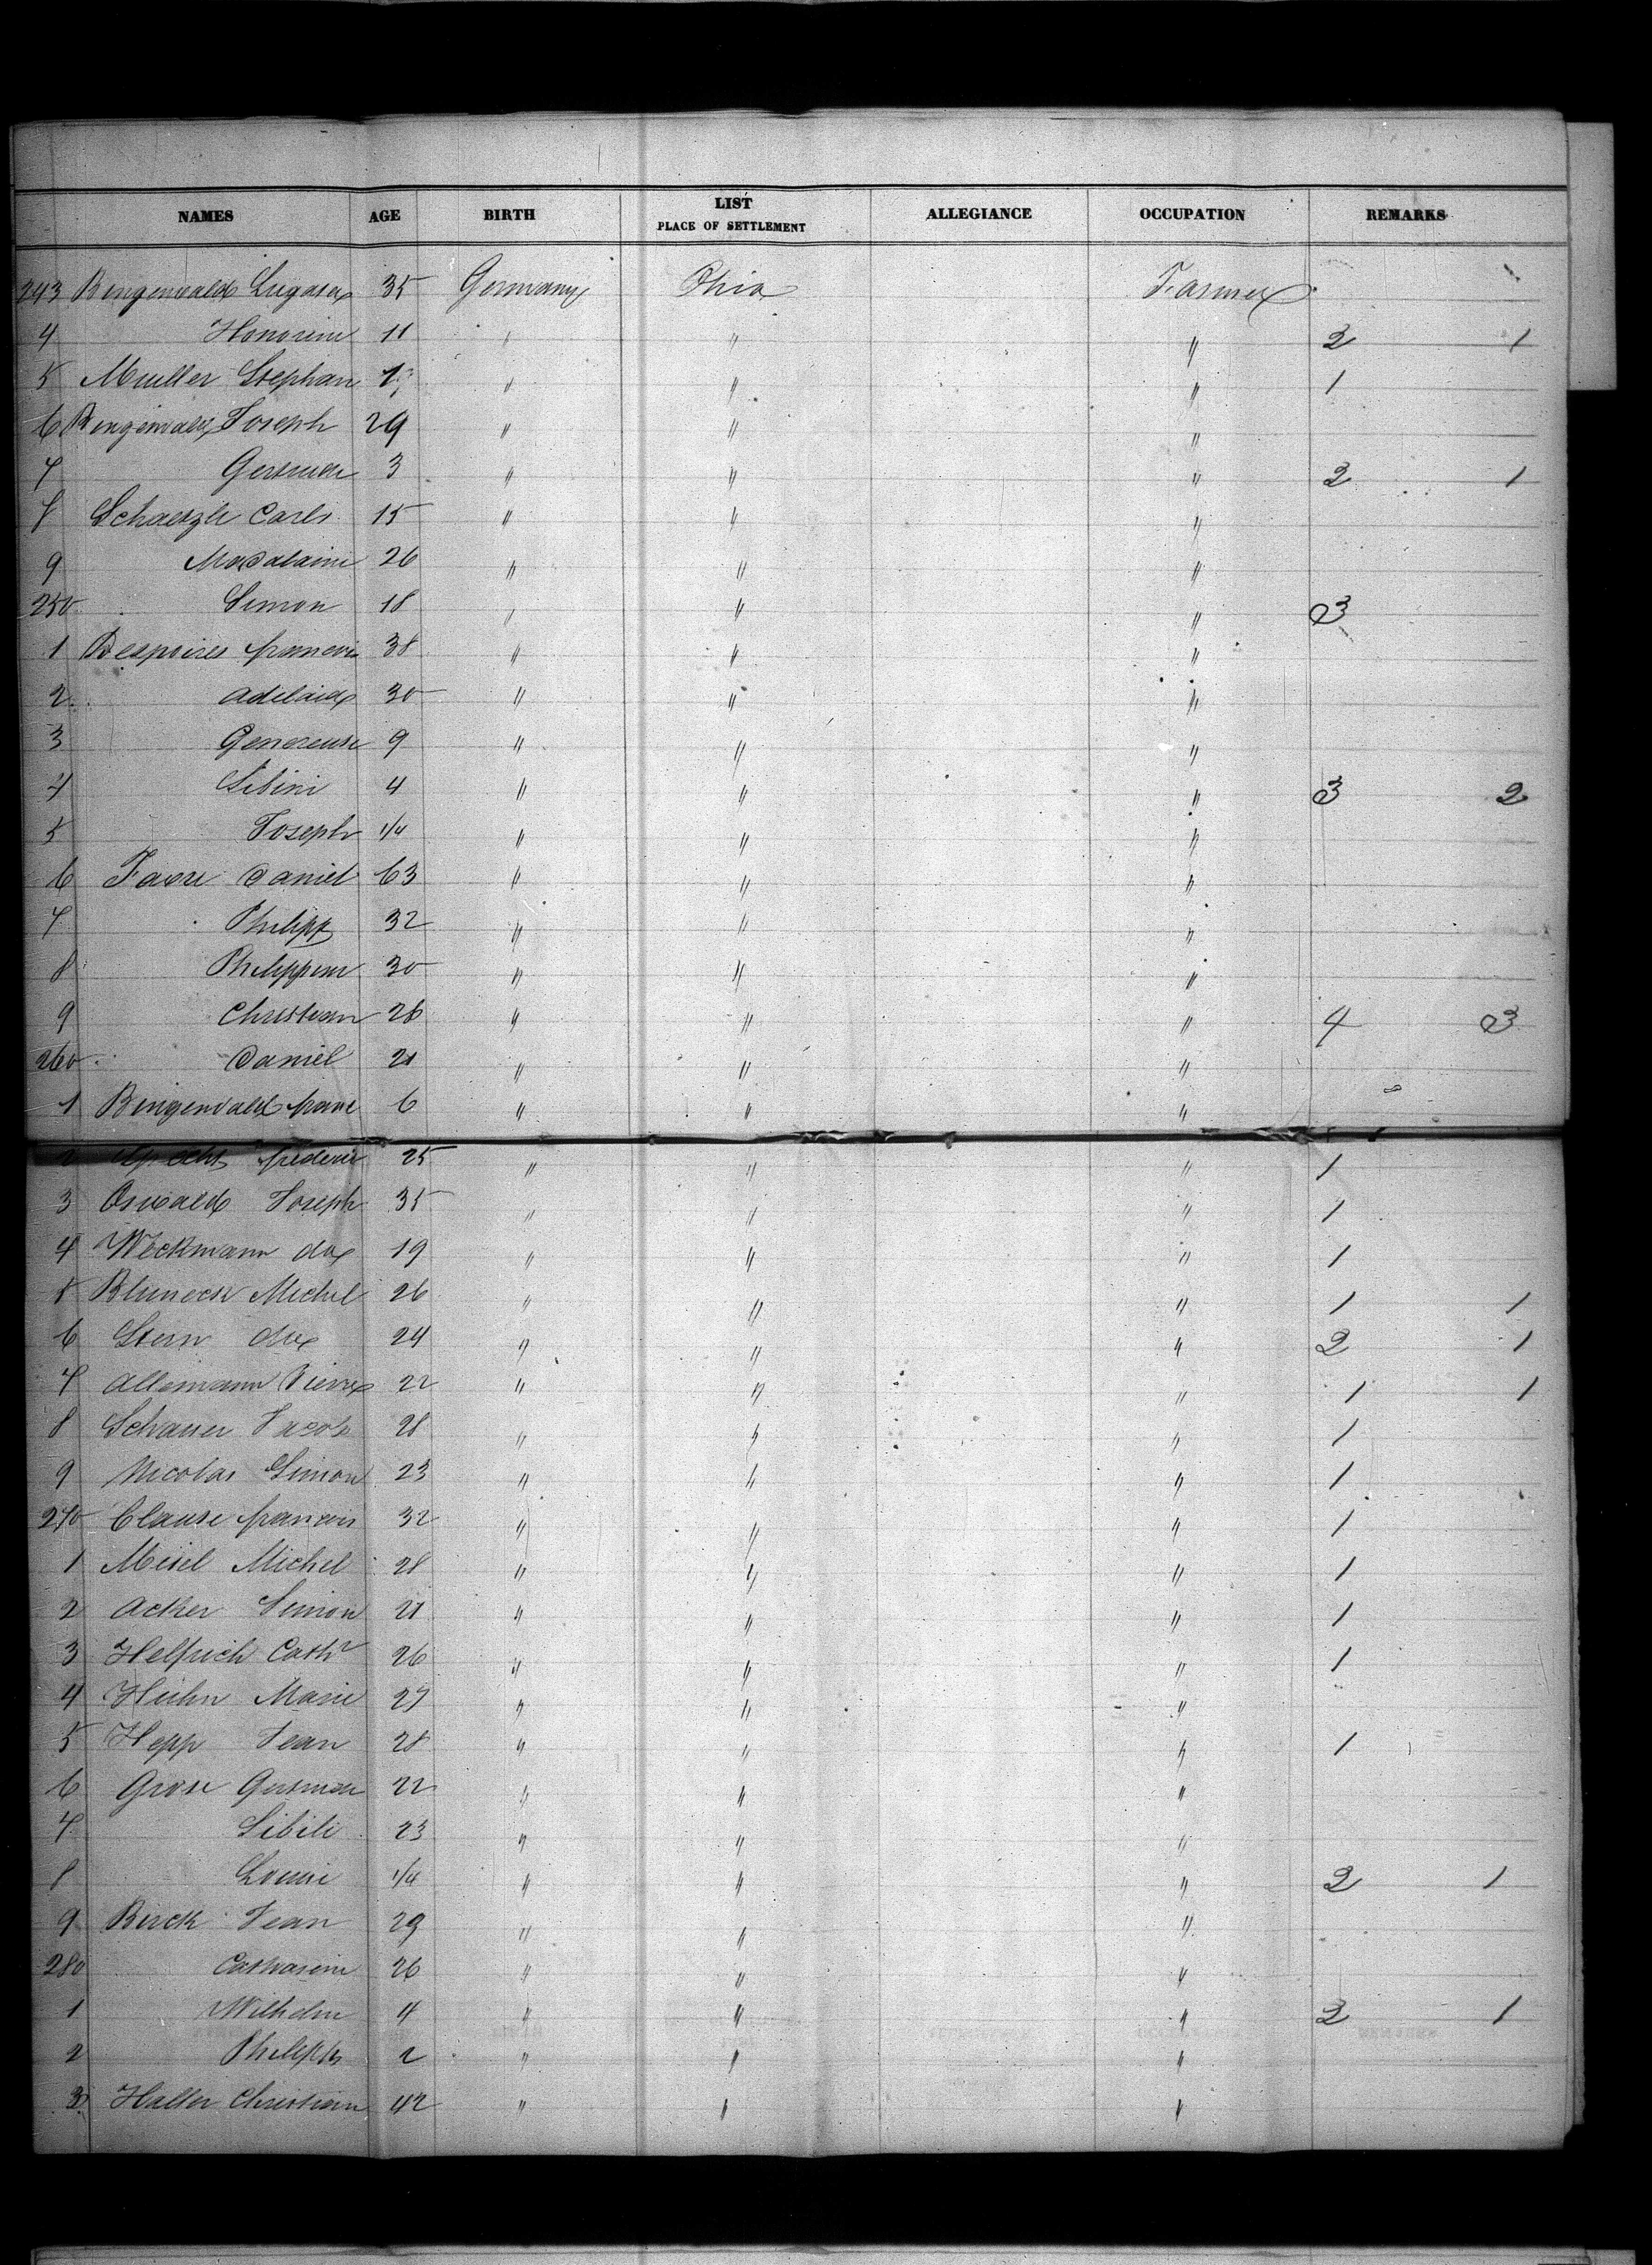 NAMES AGE BIRTH LIST PLACE OF SETTLEMENT ALLEGIANCE OCCUPATION REMARKS
243 Bingenwald 35 Germany Ohio Farmer
4 Honorine 11 " " " 2 1
5 Muller Stephan " " " 1
6 Bingenwald Joseph 29 " " "
7 3 " " " 2 1
8 Schaetzle Carls 15 " " "
9 Madalaine 26 " " "
250 Simon 18 " " " 3
1 Despoires francois 38 " " "
2 adelaide 30 " " "
3 Genereuse 9 " " "
4 4 " " " 3 2
5 Joseph 1/4 " " "
6 Daniel 63 " " "
7 Philipp 32 " " "
8 Philippine 30 " " "
9 Christian 26 " " " 4 3
260 Daniel 21 " " "
1 Bingenvald 6 " " "
2 frederic 25 " " " 1
3 Oswald Joseph 35 " " " 1
4 Weckmann 19 " " " 1
5 Michel 26 " " " 1 1
6 Stern 24 " " " 2 1
7 Allemann Pierre 22 " " " 1 1
8 Schauer Jacob 28 " " " 1
9 Nicolas Simon 23 " " " 1
270 Clause francois 32 " " " 1
1 Meisel Michel 28 " " " 1
2 Acker Simon 21 " " " 1
3 Helfrich Cathr 26 " " " 1
4 Marie 27 " " "
5 Hepp Jean 28 " " " 1
6 Grose 22 " " "
7 23 " " "
8 Louise 1/4 " " " 2 1
9 Birck Jean 29 " " "
280 Catharine 26 " " "
1 Wilhelm 4 " " " 2 1
2 Philipp 2 " " "
3 Haller Christian 42 " " "